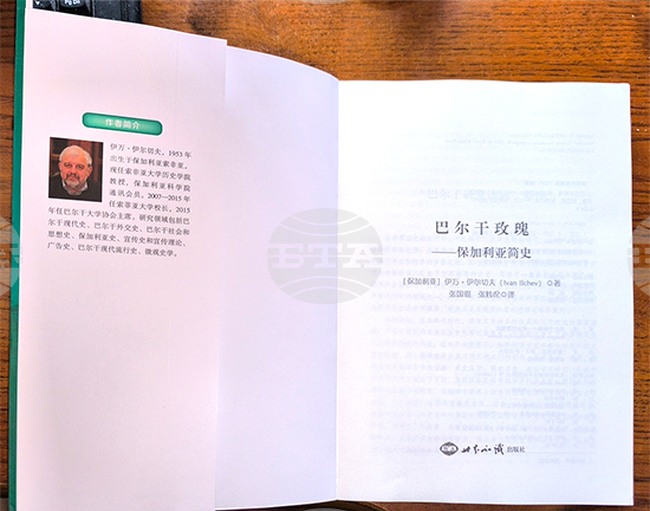 作者简介
伊万·伊尔切夫，1953 年
出生于保加利亚索非亚。
现任索非亚大学历史学院
教授，保加利亚科学院
通讯会员。2007—2015 年
任索非亚大学校长。2015
年任巴尔干大学协会主席。研究领域包括巴
尔干现代史、巴尔干外交史、巴尔干社会和
思想史、保加利亚史、宣传史和宣传理论、
广告史、巴尔干现代流行史、微观史学。
巴尔干玫瑰
——保加利亚简史
［保加利亚］伊万·伊尔切夫（Ivan Ilchev）著
译
世界知识出版社
BTA